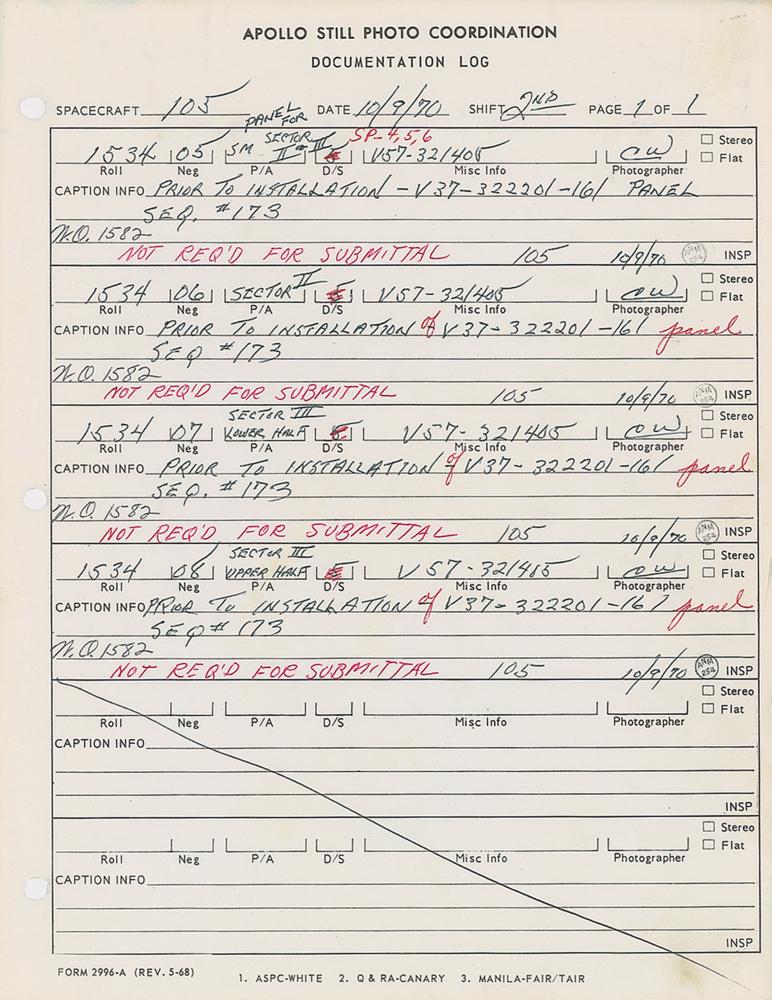 APOLLO STILL PHOTO COORDINATION
DOCUMENTATION LOG
SPACECRAFT 105 DATE 10/9/70 SHIFT 2ND PAGE 1 OF 1
PANEL FOR
SECTOR SP-4,5,6
1534 05 SM II III V57-321405 CW Stereo
Roll Neg P/A D/S Misc Info Photographer Flat
CAPTION INFO PRIOR TO INSTALLATION - V37-322201-161 PANEL
SEQ. #173
W.O. 1582
NOT REQ'D FOR SUBMITTAL 105 10/9/70 ANM 254 INSP
1534 06 SECTOR II V57-321405 CW Stereo
Roll Neg P/A D/S Misc Info Photographer Flat
CAPTION INFO PRIOR TO INSTALLATION of V37-322201-161 panel
SEQ #173
W.O. 1582
NOT REQ'D FOR SUBMITTAL 105 10/9/70 ANM 254 INSP
SECTOR III Stereo
1534 07 LOWER HALF V57-321405 CW Flat
Roll Neg P/A D/S Misc Info Photographer
CAPTION INFO PRIOR TO INSTALLATION of V37-322201-161 panel
SEQ. #173
W.O. 1582
NOT REQ'D FOR SUBMITTAL 105 10/9/70 ANM 254 INSP
SECTOR III Stereo
1534 08 UPPER HALF V57-321405 CW Flat
Roll Neg P/A D/S Misc Info Photographer
CAPTION INFO PRIOR TO INSTALLATION of V37-322201-161 panel
SEQ # 173
W.O. 1582
NOT REQ'D FOR SUBMITTAL 105 10/9/70 ANM 254 INSP
Stereo
Flat
Roll Neg P/A D/S Misc Info Photographer
CAPTION INFO
INSP
Stereo
Flat
Roll Neg P/A D/S Misc Info Photographer
CAPTION INFO
INSP
FORM 2996-A (REV. 5-68) 1. ASPC-WHITE 2. Q & RA-CANARY 3. MANILA-FAIR/TAIR